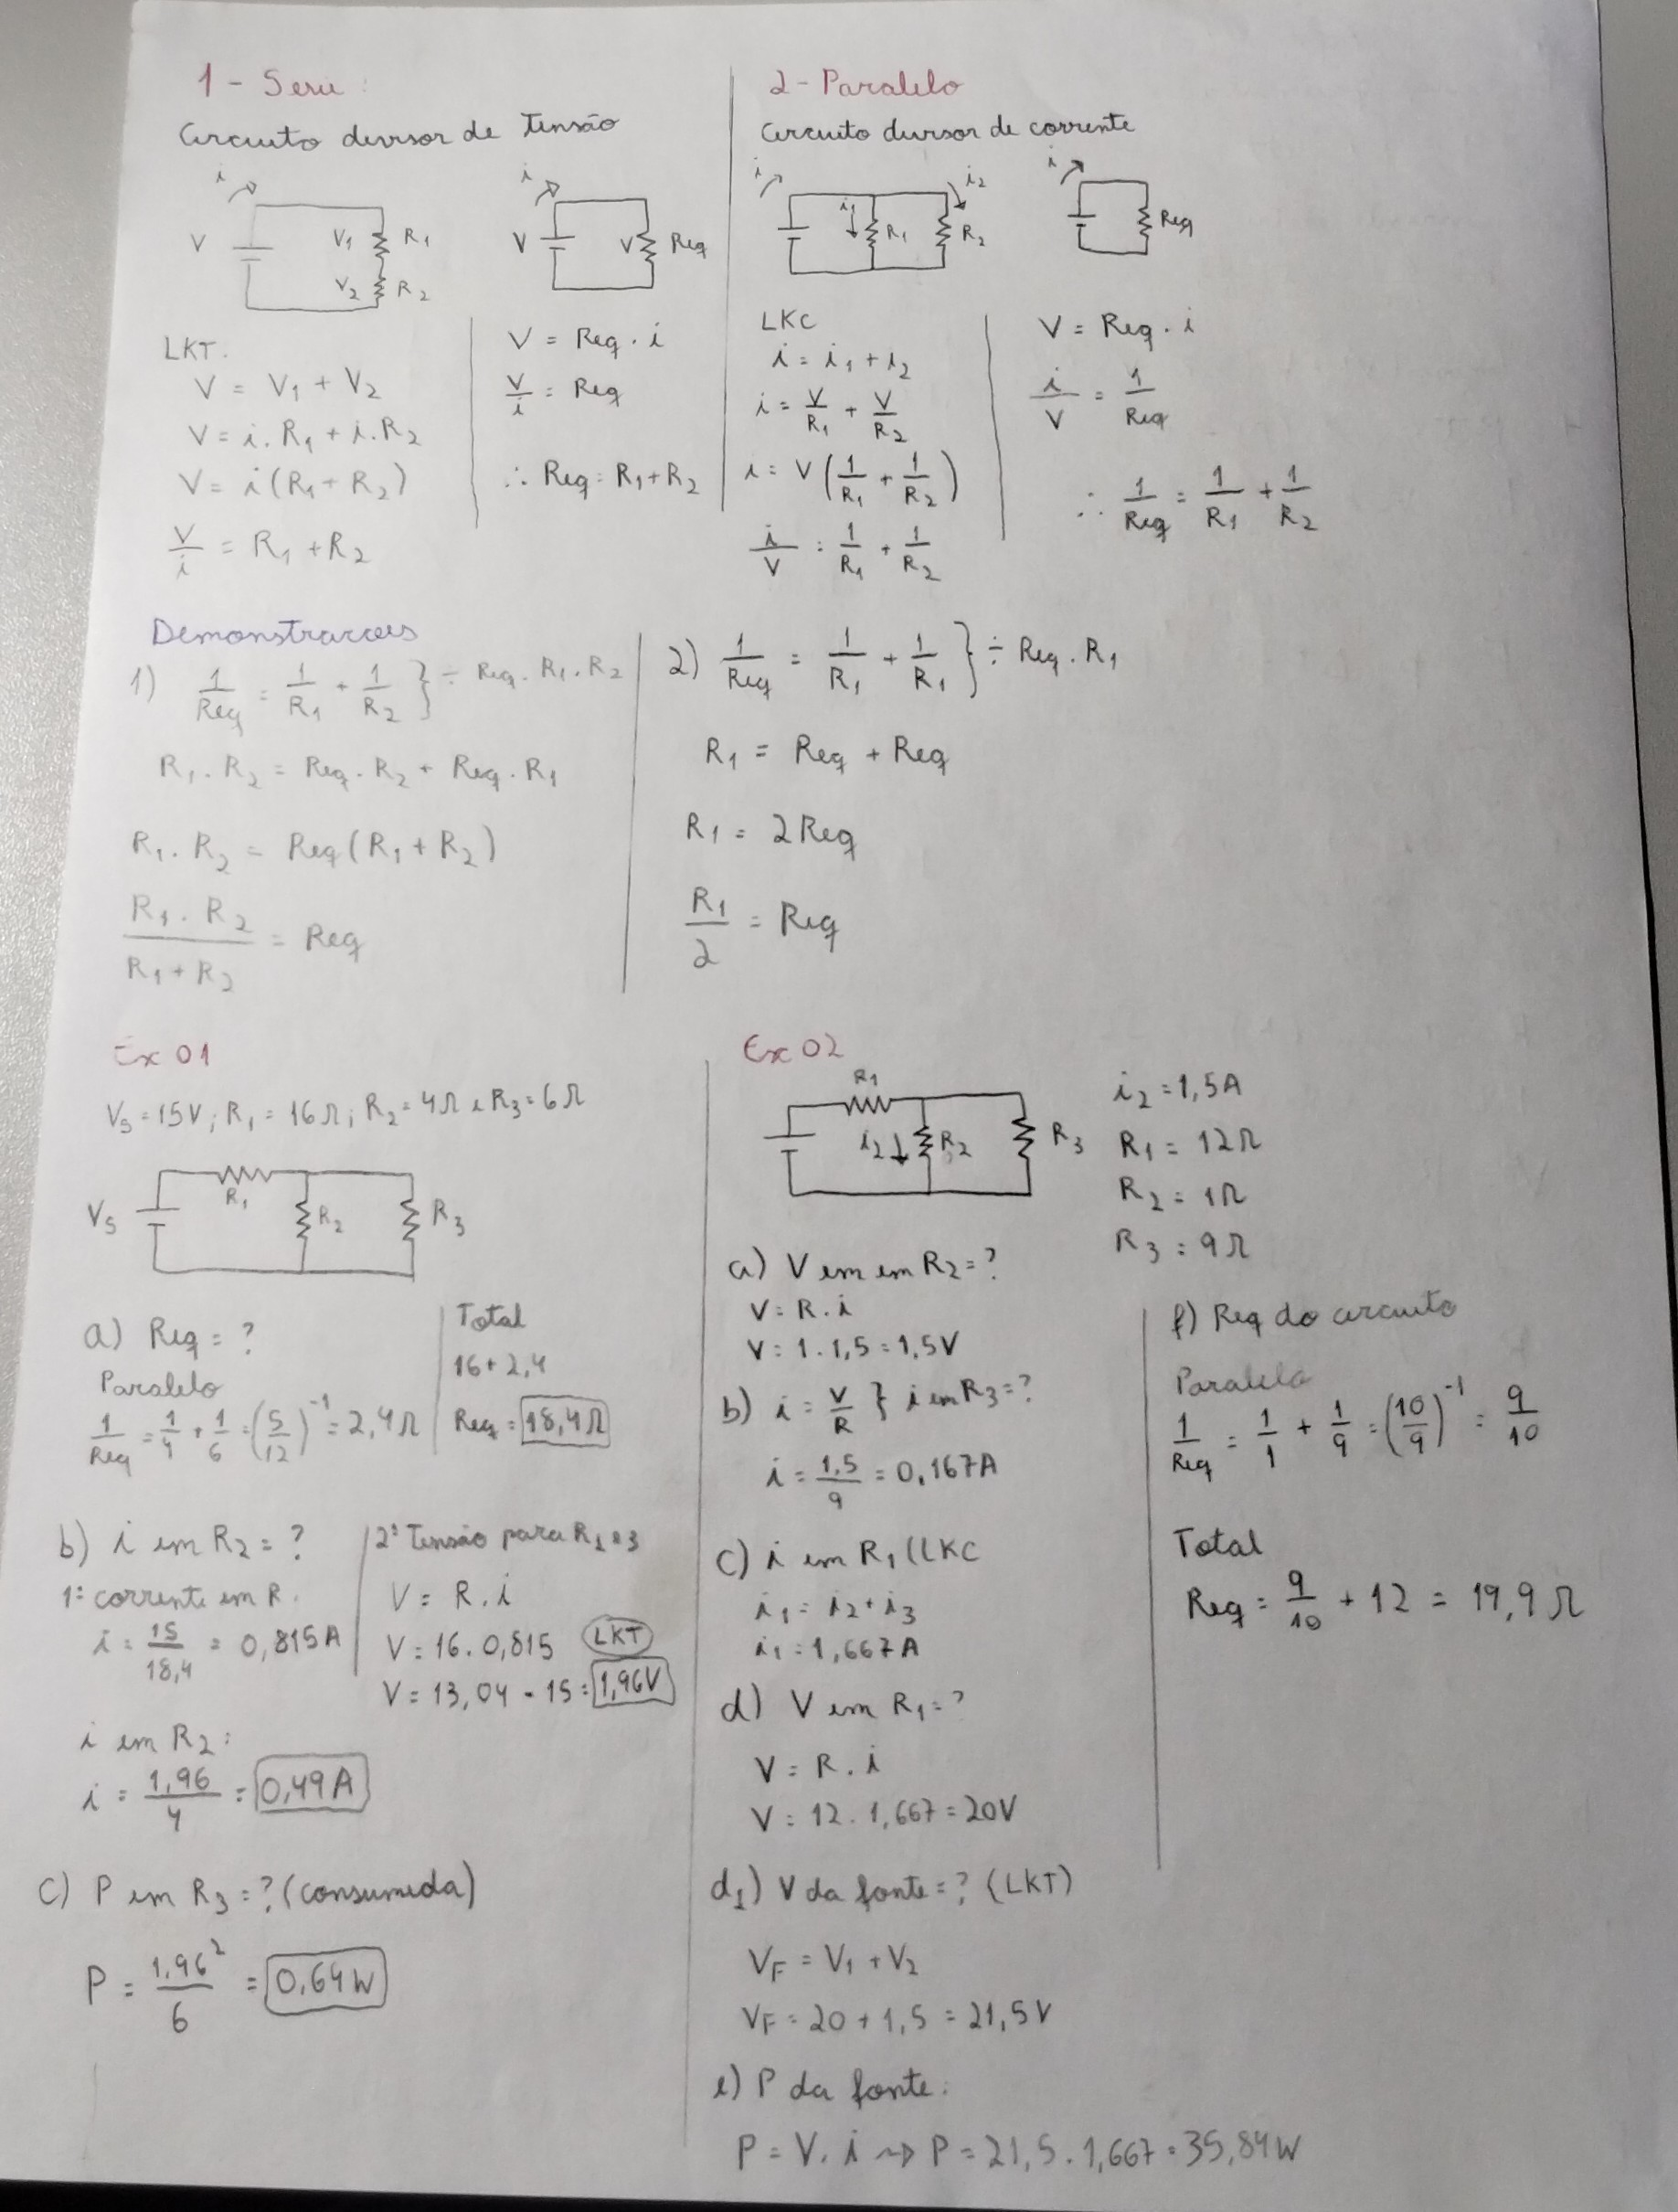 1 - Serie:
Circuito divisor de Tensão
i
V
V₁ R₁
V₂ R₂
i
V
V Req
LKT.
V = V₁ + V₂
V = i.R₁ + i.R₂
V = i(R₁ + R₂)
V/i = R₁ + R₂
V = Req . i
V/i = Req
∴ Req = R₁+R₂
2 - Paralelo
Circuito divisor de corrente
i
i₁ R₁
i₂
R₂
i
Req
LKC
i = i₁ + i₂
i = V/R₁ + V/R₂
i = V (1/R₁ + 1/R₂)
i/V = 1/R₁ + 1/R₂
V = Req . i
i/V = 1/Req
∴ 1/Req = 1/R₁ + 1/R₂
Demonstracoes
1) 1/Req = 1/R₁ + 1/R₂ } ÷ Req . R₁ . R₂
R₁ . R₂ = Req . R₂ + Req . R₁
R₁ . R₂ = Req (R₁ + R₂)
R₁ . R₂ / R₁ + R₂ = Req
2) 1/Req = 1/R₁ + 1/R₁ } ÷ Req . R₁
R₁ = Req + Req
R₁ = 2Req
R₁/2 = Req
Ex 01
Vs = 15V; R₁ = 16Ω; R₂ = 4Ω e R₃ = 6Ω
Vs
R₁
R₂
R₃
a) Req = ?
Paralelo
1/Req = 1/4 + 1/6 = (5/12)⁻¹ = 2,4Ω
Total
16 + 2,4
Req = 18,4Ω
b) i em R₂ = ?
1º corrente em R.
i = 15/18,4 = 0,815A
2º Tensão para R₂ e 3
V = R.i
V = 16. 0,815 LKT
V = 13,04 - 15 = 1,96V
i em R₂:
i = 1,96/4 = 0,49A
c) P em R₃ = ? (consumida)
P = 1,96²/6 = 0,64W
Ex 02
R₁
i₂ R₂
R₃
i₂ = 1,5A
R₁ = 12Ω
R₂ = 1Ω
R₃ = 9Ω
a) V em em R₂ = ?
V = R.i
V = 1 . 1,5 = 1,5V
b) i = V/R } i em R₃ = ?
i = 1,5/9 = 0,167A
c) i em R₁ (LKC
i₁ = i₂ + i₃
i₁ = 1,667A
d) V em R₁ = ?
V = R . i
V = 12 . 1,667 = 20V
d₁) V da fonte = ? (LKT)
VF = V₁ + V₂
VF = 20 + 1,5 = 21,5V
e) P da fonte:
P = V. i ~> P = 21,5 . 1,667 = 35,84W
f) Req do circuito
Paralelo
1/Req = 1/1 + 1/9 = (10/9)⁻¹ = 9/10
Total
Req = 9/10 + 12 = 19,9Ω